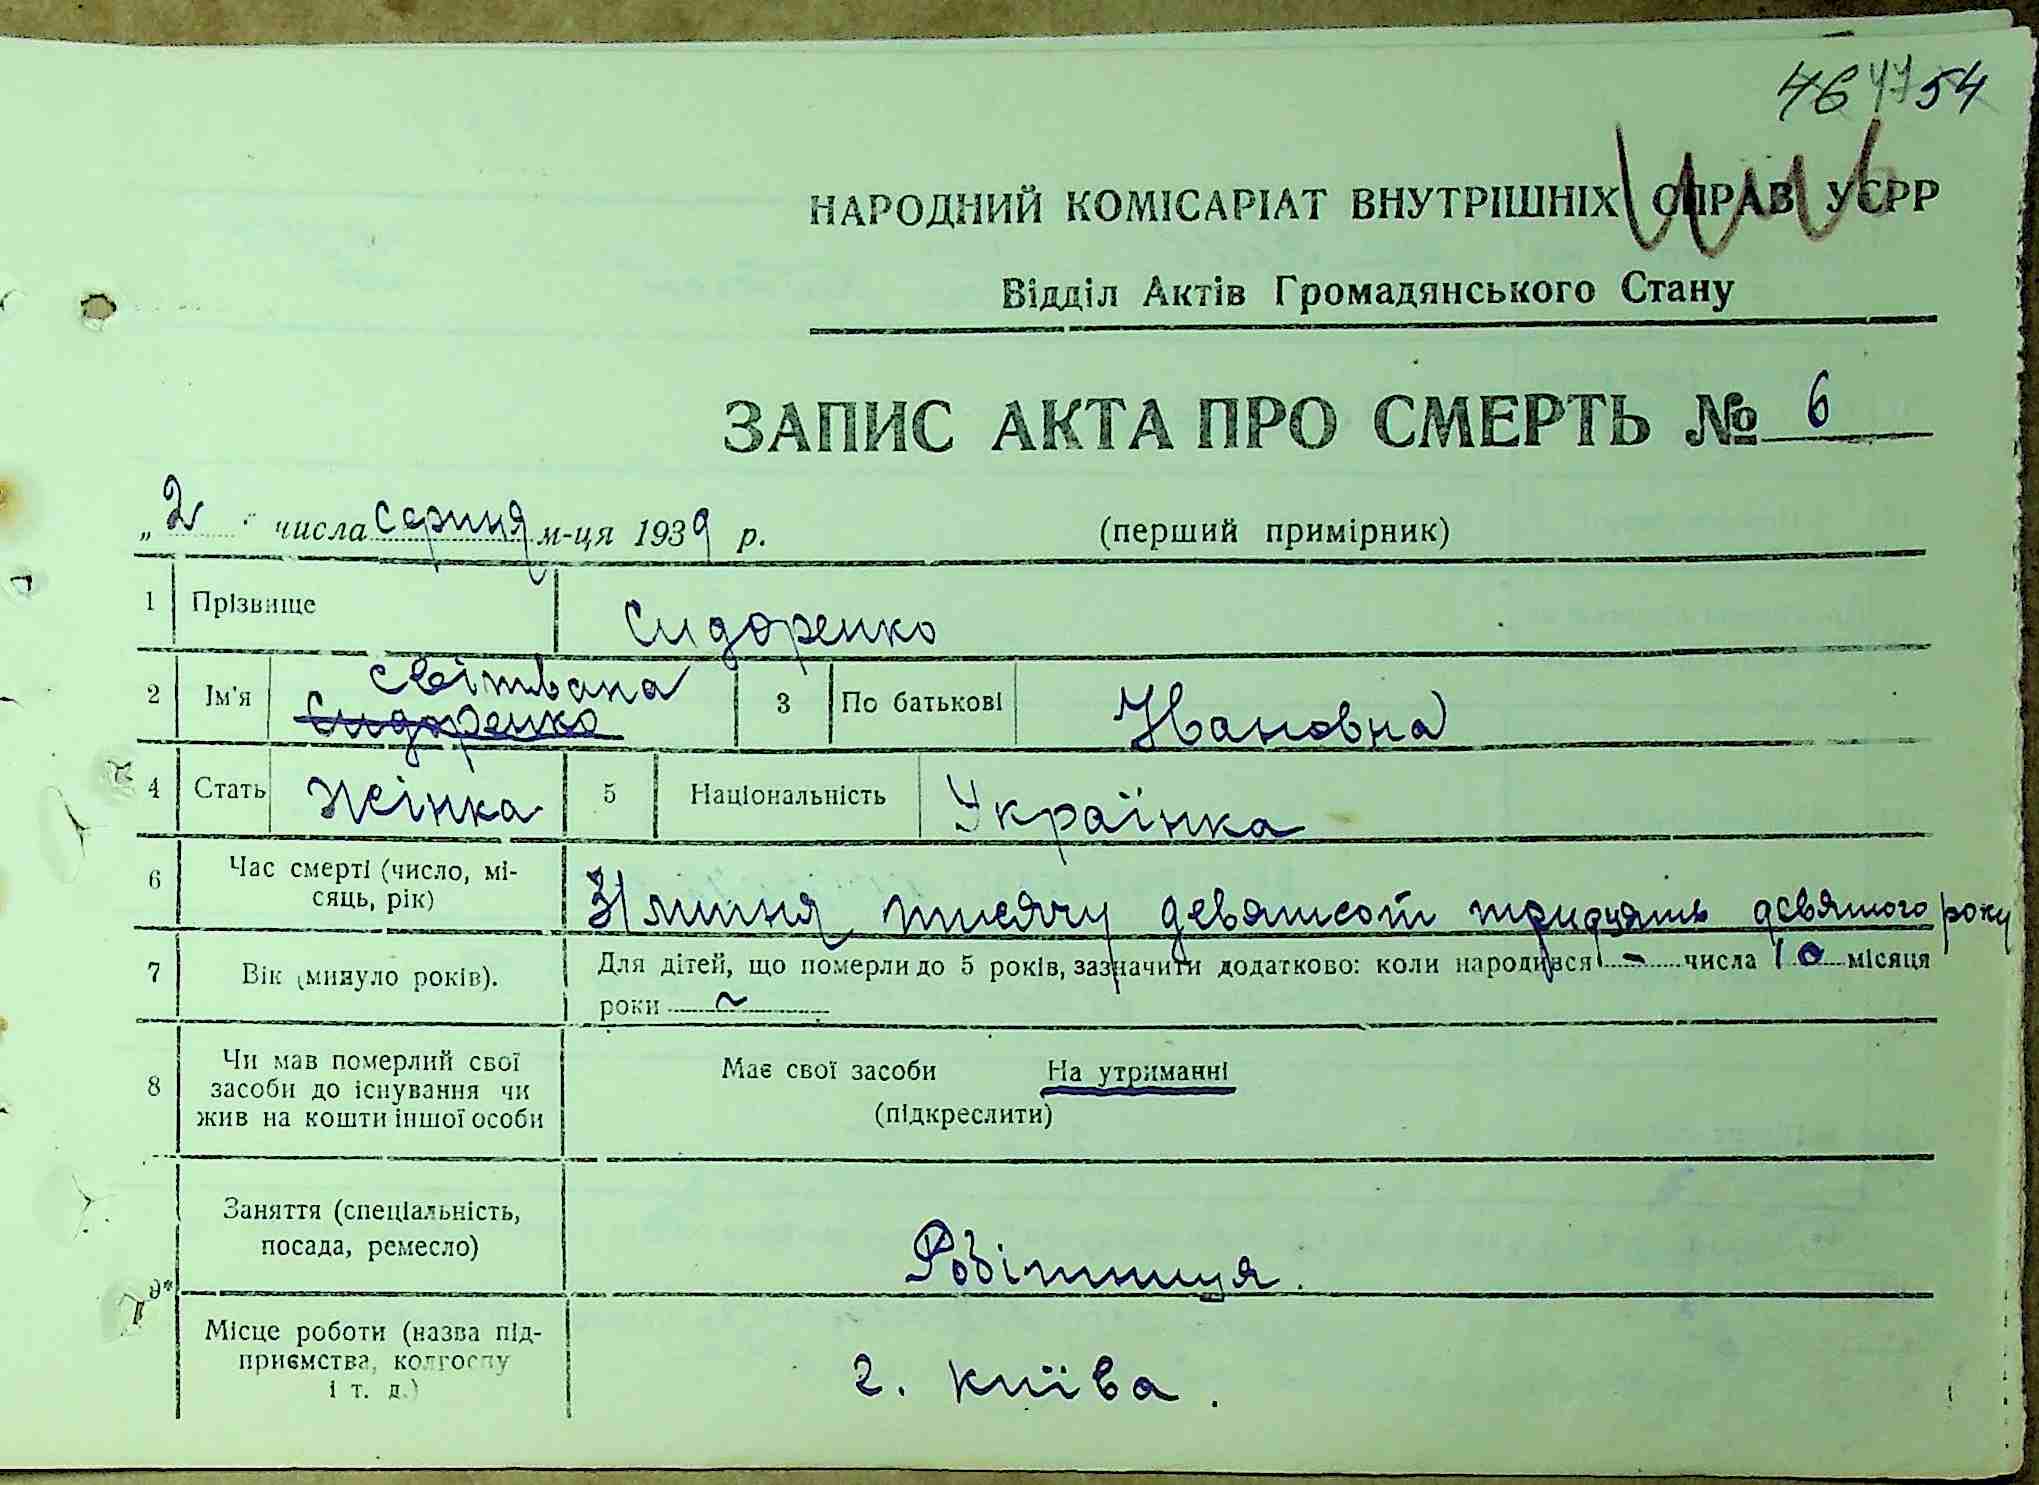 46 47 54
НАРОДНИЙ КОМІСАРІАТ ВНУТРІШНІХ СПРАВ УСРР
Відділ Актів Громадянського Стану
ЗАПИС АКТА ПРО СМЕРТЬ № 6
„2“ числа серпня м-ця 1939 р. (перший примірник)
1 Прізвище Сидоренко
світвана
2 Ім'я Сидоренко 3 По батькові Ивановна
4 Стать Жінка 5 Національність Українка
6 Час смерті (число, мі-
сяць, рік) 31 липня тисячу девятсот тридцять девятого року
7 Вік (минуло років). Для дітей, що померли до 5 років, зазначити додатково: коли народився - числа 10 місяця
роки ~
8 Чи мав померлий свої
засоби до існування чи
жив на кошти іншої особи
Має свої засоби На утриманні
(підкреслити)
Заняття (спеціальність,
посада, ремесло) Робітниця.
9*
Місце роботи (назва під-
приємства, колгоспу
і т. д.) г. київа.